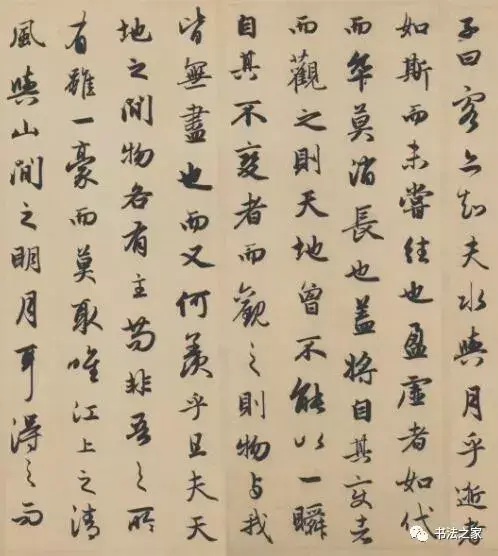 子曰客亦知夫水與月乎逝者
如斯而未嘗往也盈虛者如代
而卒莫消長也蓋將自其變者
而觀之則天地曾不能以一瞬
自其不變者而觀之則物与我
皆無盡也而又何羨乎且夫天
地之間物各有主苟非吾之所
有雖一豪而莫取唯江上之清
風與山間之明月耳得之而
书法之家